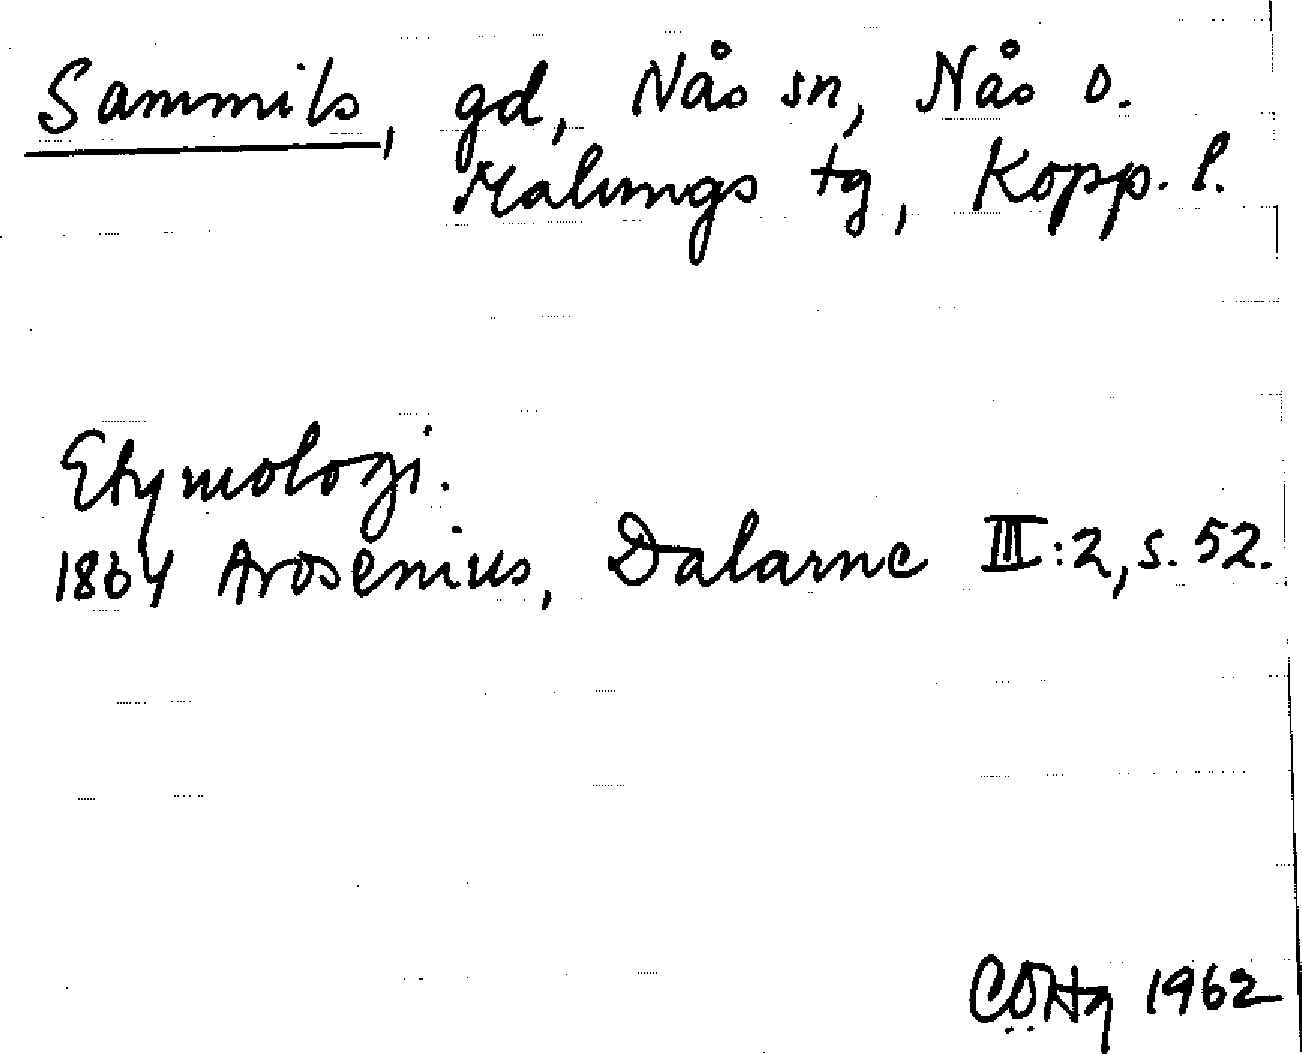 Sammils, gd, Nås sn, Nås o.
Malungs tg, Kopp. l.
Etymologi.
1864 Arosenius, Dalarne III:2, s. 52.
1962